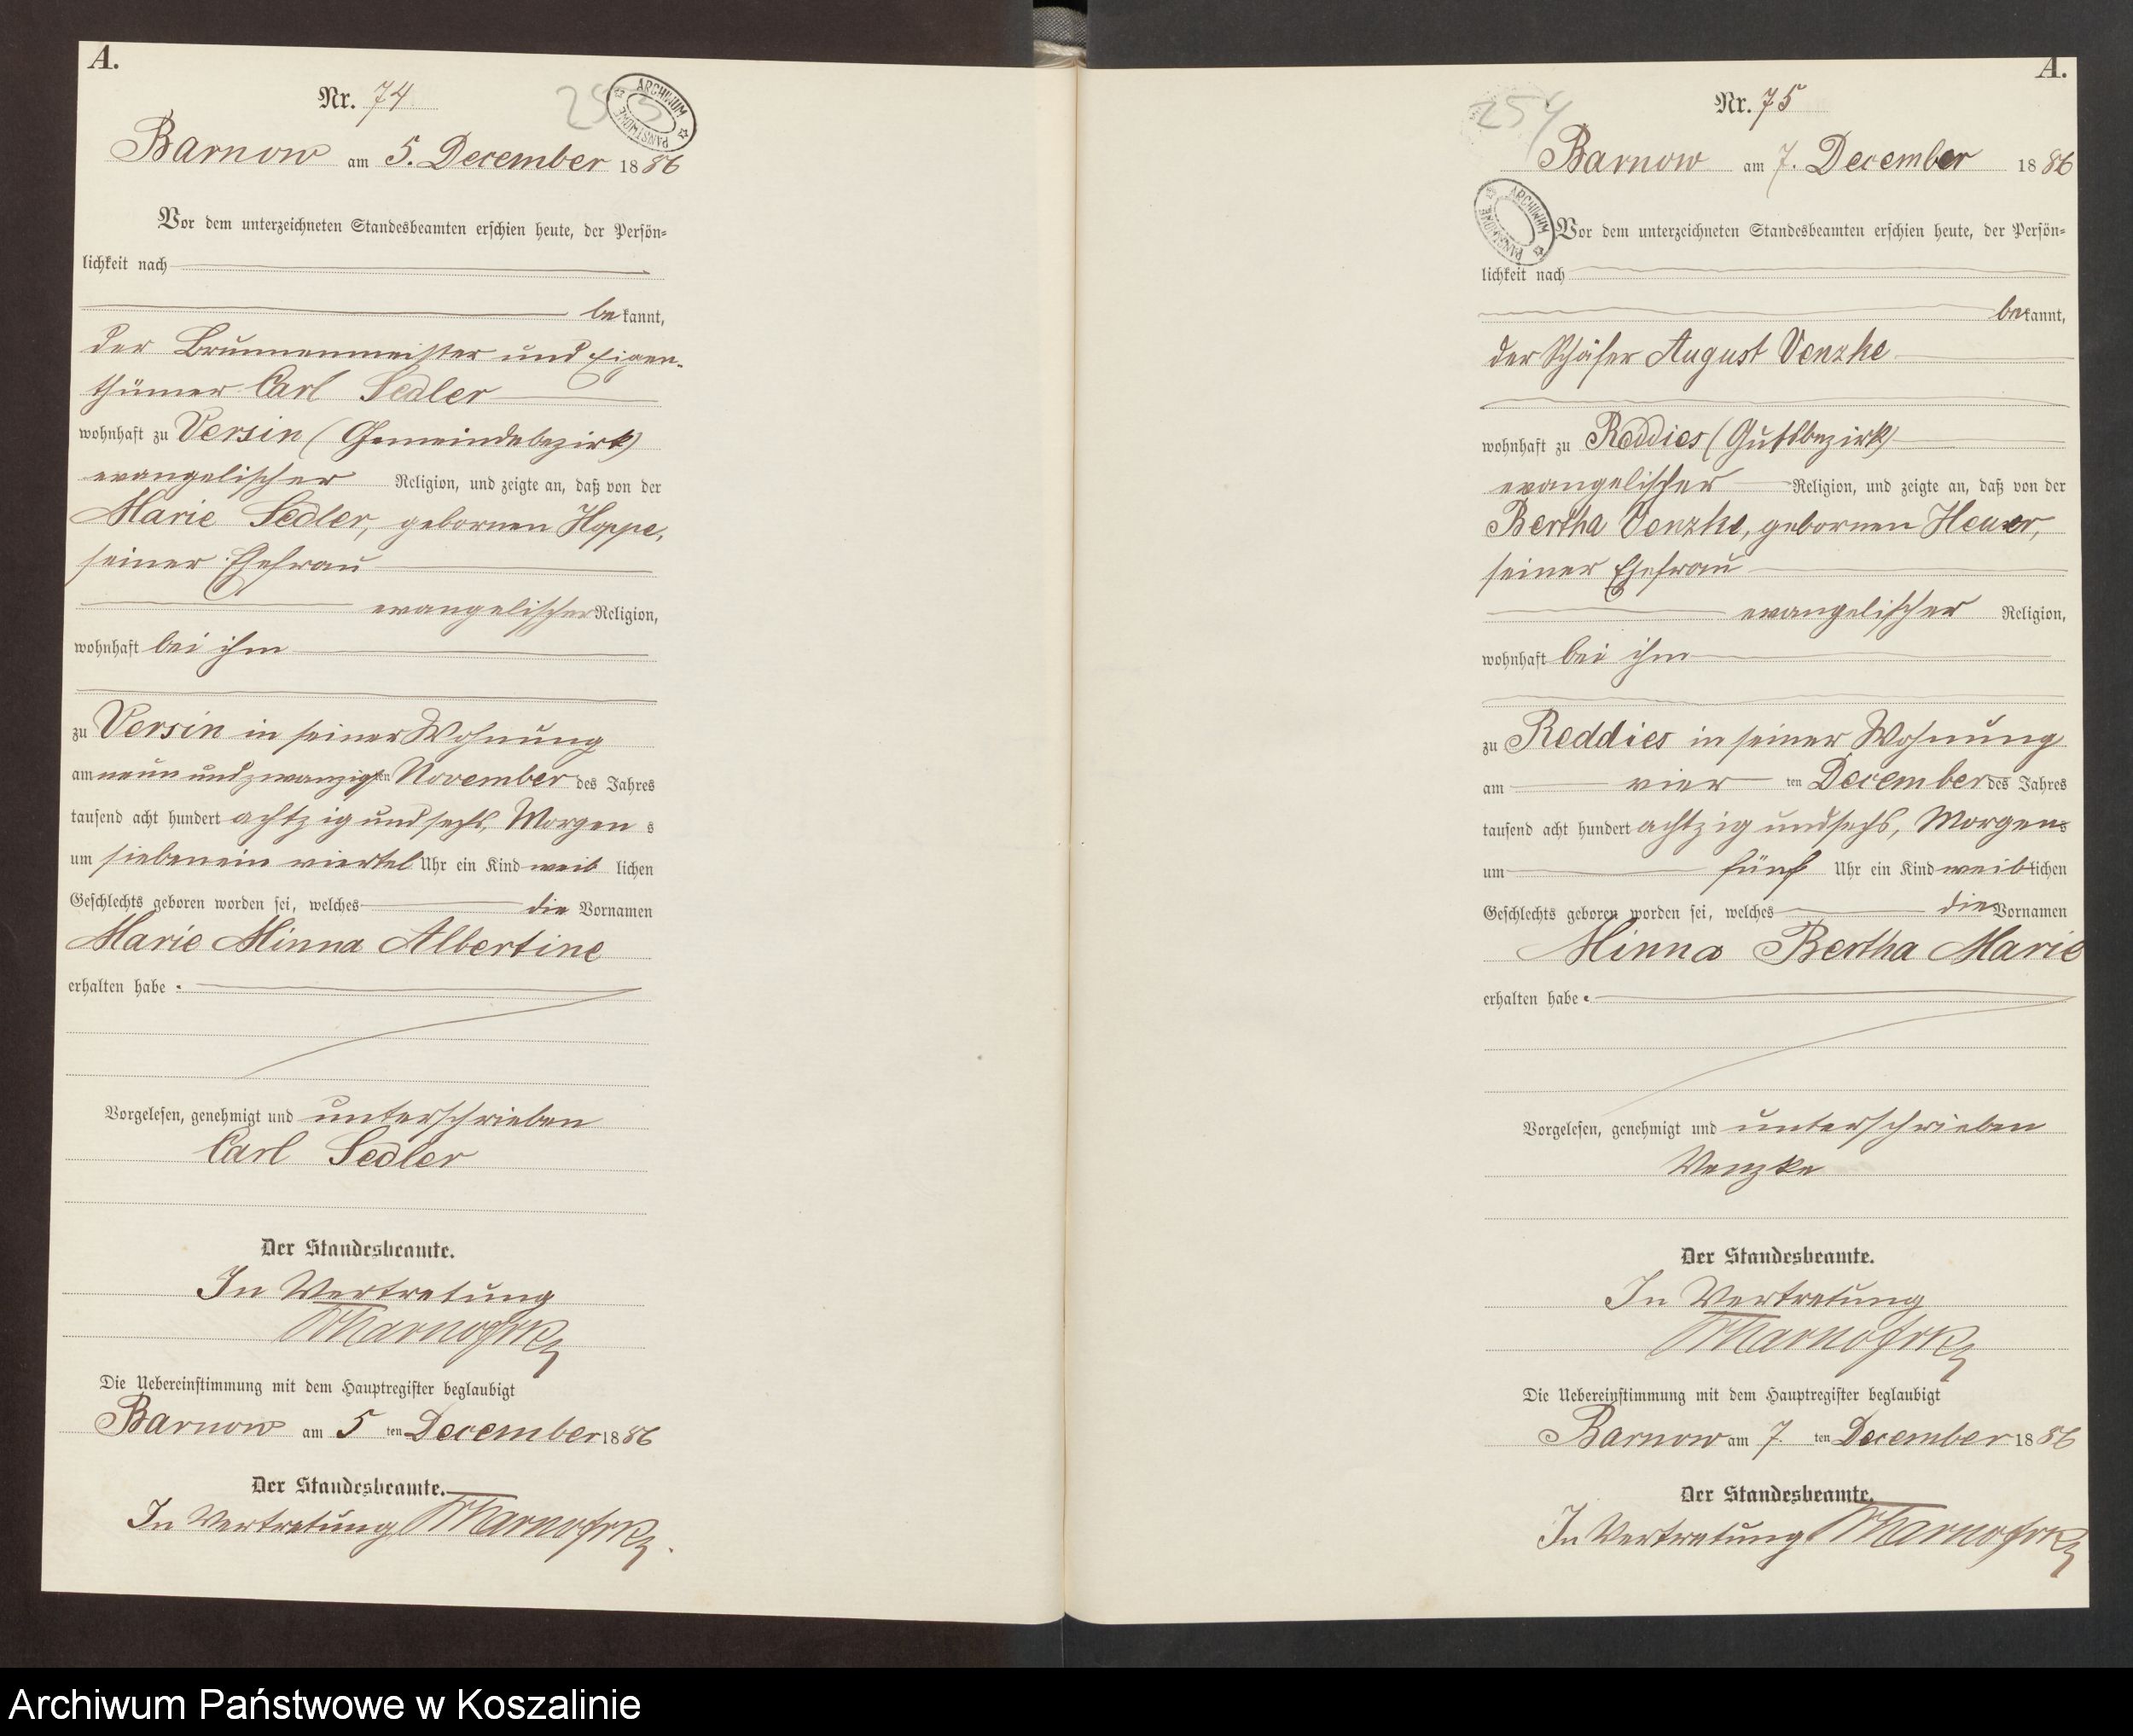 A.
Nr. 74
253
ARCHIWUM PAŃSTWOWE
Barnow am 5. December 1886
Vor dem unterzeichneten Standesbeamten erschien heute, der Persön-
lichkeit nach
bekannt,
der Brunnenmeister und Eigen-
thümer Carl Sedler
wohnhaft zu Versin (Gemeindebezirk)
evangelischer Religion, und zeigte an, daß von der
Marie Sedler, gebornen Hoppe,
seiner Ehefrau
evangelischer Religion,
wohnhaft bei ihm
zu Versin in seiner Wohnung
am neun und zwanzigsten November des Jahres
tausend acht hundert achtzig und sechs, Morgens
um sieben ein viertel Uhr ein Kind weiblichen
Geschlechts geboren worden sei, welches die Vornamen
Marie Minna Albertine
erhalten habe.
Vorgelesen, genehmigt und unterschrieben
Carl Sedler
Der Standesbeamte.
In Vertretung
Die Uebereinstimmung mit dem Hauptregister beglaubigt
Barnow am 5 ten December 1886
Der Standesbeamte.
In Vertretung
A.
Nr. 75
254
ARCHIWUM PAŃSTWOWE
Barnow am 7. December 1886
Vor dem unterzeichneten Standesbeamten erschien heute, der Persön-
lichkeit nach
bekannt,
der Schäfer August Venzke
wohnhaft zu Reddies (Gutsbezirk)
evangelischer Religion, und zeigte an, daß von der
Bertha Venzke, gebornen Heuer,
seiner Ehefrau
evangelischer Religion,
wohnhaft bei ihm
zu Reddies in seiner Wohnung
am vier ten December des Jahres
tausend acht hundert achtzig und sechs, Morgens
um fünf Uhr ein Kind weiblichen
Geschlechts geboren worden sei, welches die Vornamen
Minna Bertha Marie
erhalten habe.
Vorgelesen, genehmigt und unterschrieben
Venzke
Der Standesbeamte.
In Vertretung
Die Uebereinstimmung mit dem Hauptregister beglaubigt
Barnow am 7. ten December 1886
Der Standesbeamte.
In Vertretung
Archiwum Państwowe w Koszalinie